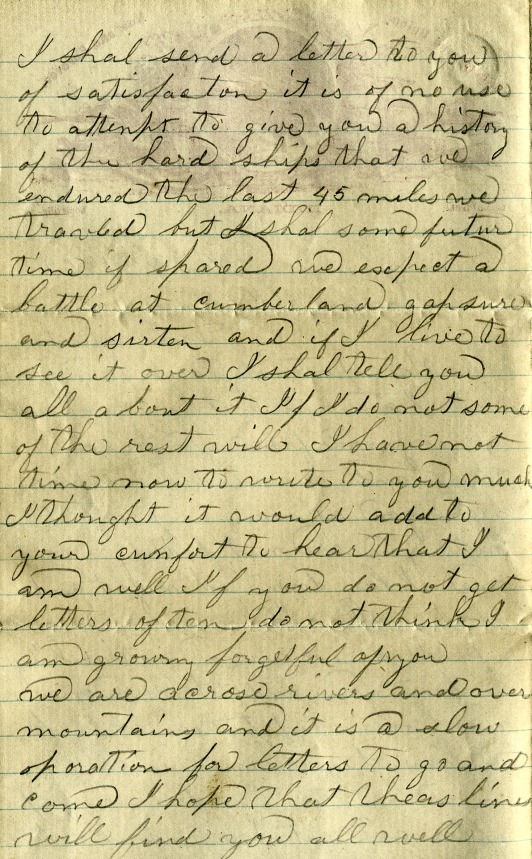 I shal send a letter to you
of satisfacton it is of no use
to attempt to give you a history
of the hard ships that we
endured the last 45 miles we
traveld but I shal some futur
time if spared we exspect a
battle at cumberland gap sure
and sirten and if I live to
see it over I shal tell you
all about it If I do not some
of the rest will I have not
time now to write to you much
I thought it would add to
your cumfort to hear that I
am well If you do not get
letters often do not think I
am growing forgetful of you
we are across rivers and over
mountains and it is a slow
oporation for letters to go and
come I hope that theas lines
will find you all well